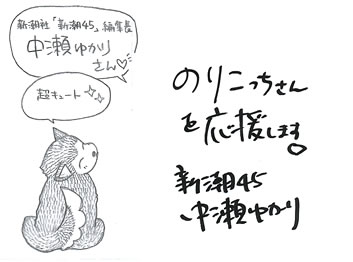 新潮社「新潮45」編集長
中瀬ゆかり
さん♡
超キュート
のりこっちさん
を応援します。
新潮45
中瀬ゆかり